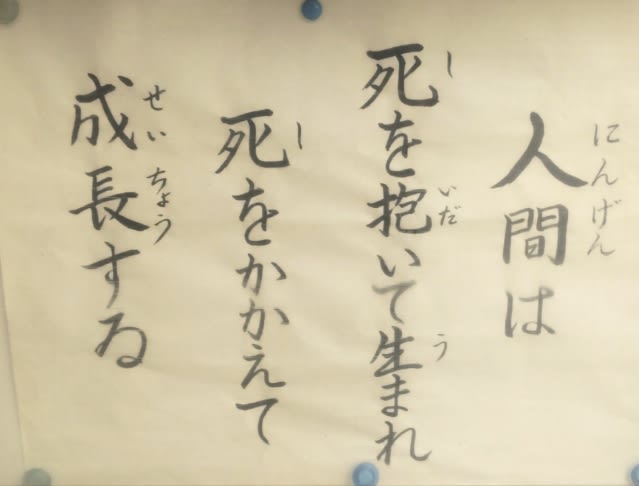 人間は
にんげん
死を抱いて生まれ
し
いだ
う
死をかかえて
し
成長する
せいちょう